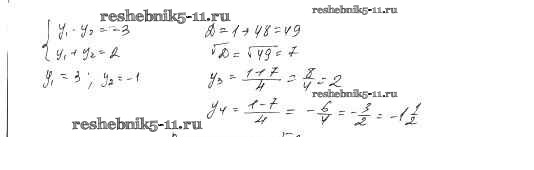 reshebnik5-11.ru
reshebnik5-11.ru
{ y₁ · y₂ = -3
y₁ + y₂ = 2
y₁ = 3 ; y₂ = -1
D = 1 + 48 = 49
√D = √49 = 7
y₃ = (1+7)/4 = 8/4 = 2
reshebnik5-11.ru
y₄ = (1-7)/4 = -6/4 = -3/2 = -1 1/2
reshebnik5-11.ru